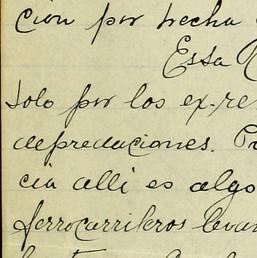 cion por hecha
Essa
solo por los ex-re
depredaciones. Pr
cia alli es algo
ferrocarrileros levan